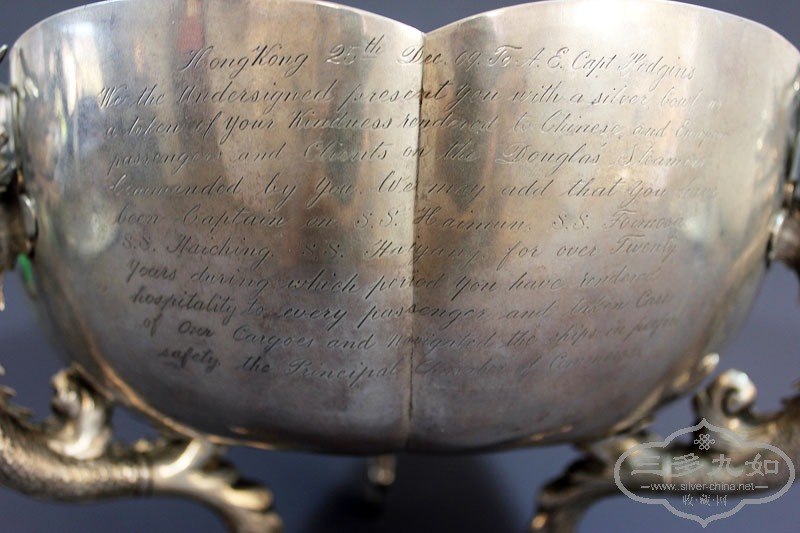 HongKong 25th Dec. 09. To A. E. Capt Hodgins
We the Undersigned present you with a silver bowl as
a token of your Kindness rendered to Chinese, and European
passengers and Clients on the Douglas' Steamers
Commanded by you. We may add that you have
been Captain on S.S. Haimun. S.S. Formosa
S.S. Haiching. S.S. Haiyang. for over Twenty
Years during which period you have rendered
hospitality to every passenger and taken Care
of Our Cargoes and navigated the ships in perfect
safety the Principal Chamber of Commerce
三多九如
www.silver-china.net
收·藏·网